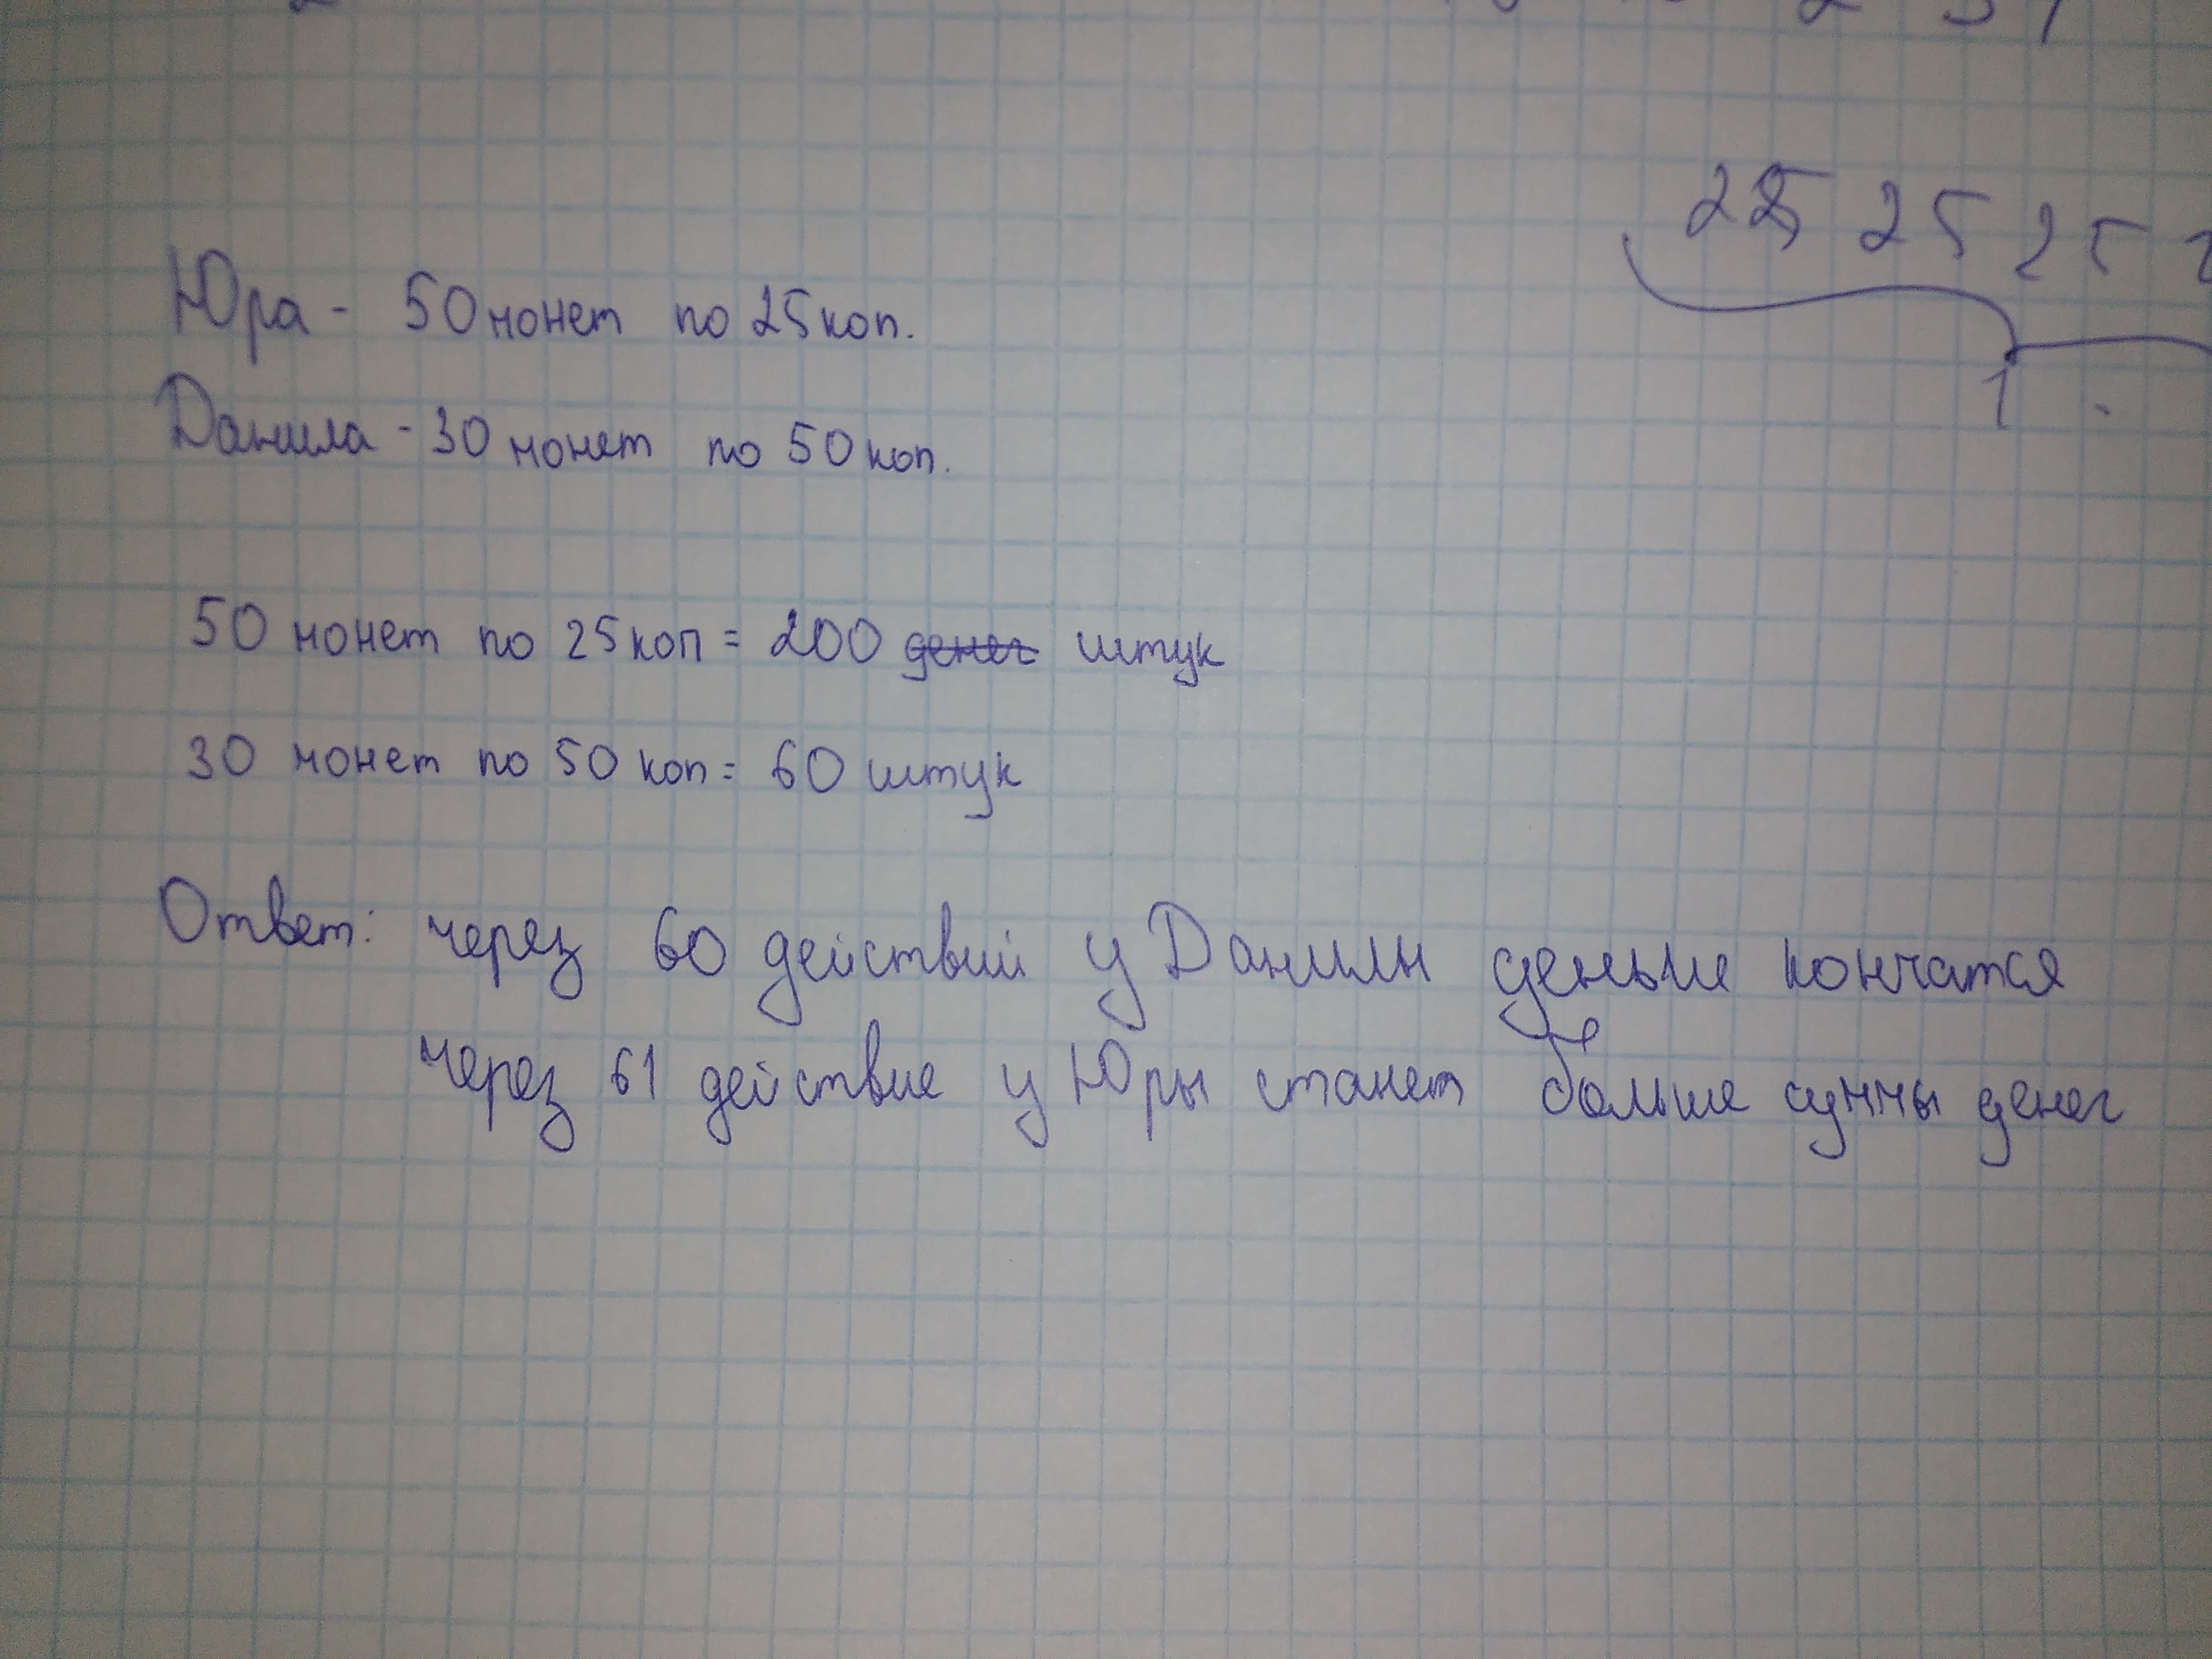 25 25 25
1
Юра - 50 монет по 25 коп.
Данила - 30 монет по 50 коп.
50 монет по 25 коп = 200 денег штук
30 монет по 50 коп = 60 штук
Ответ: через 60 действий у Данилы деньги кончатся
через 61 действие у Юры станет больше суммы денег